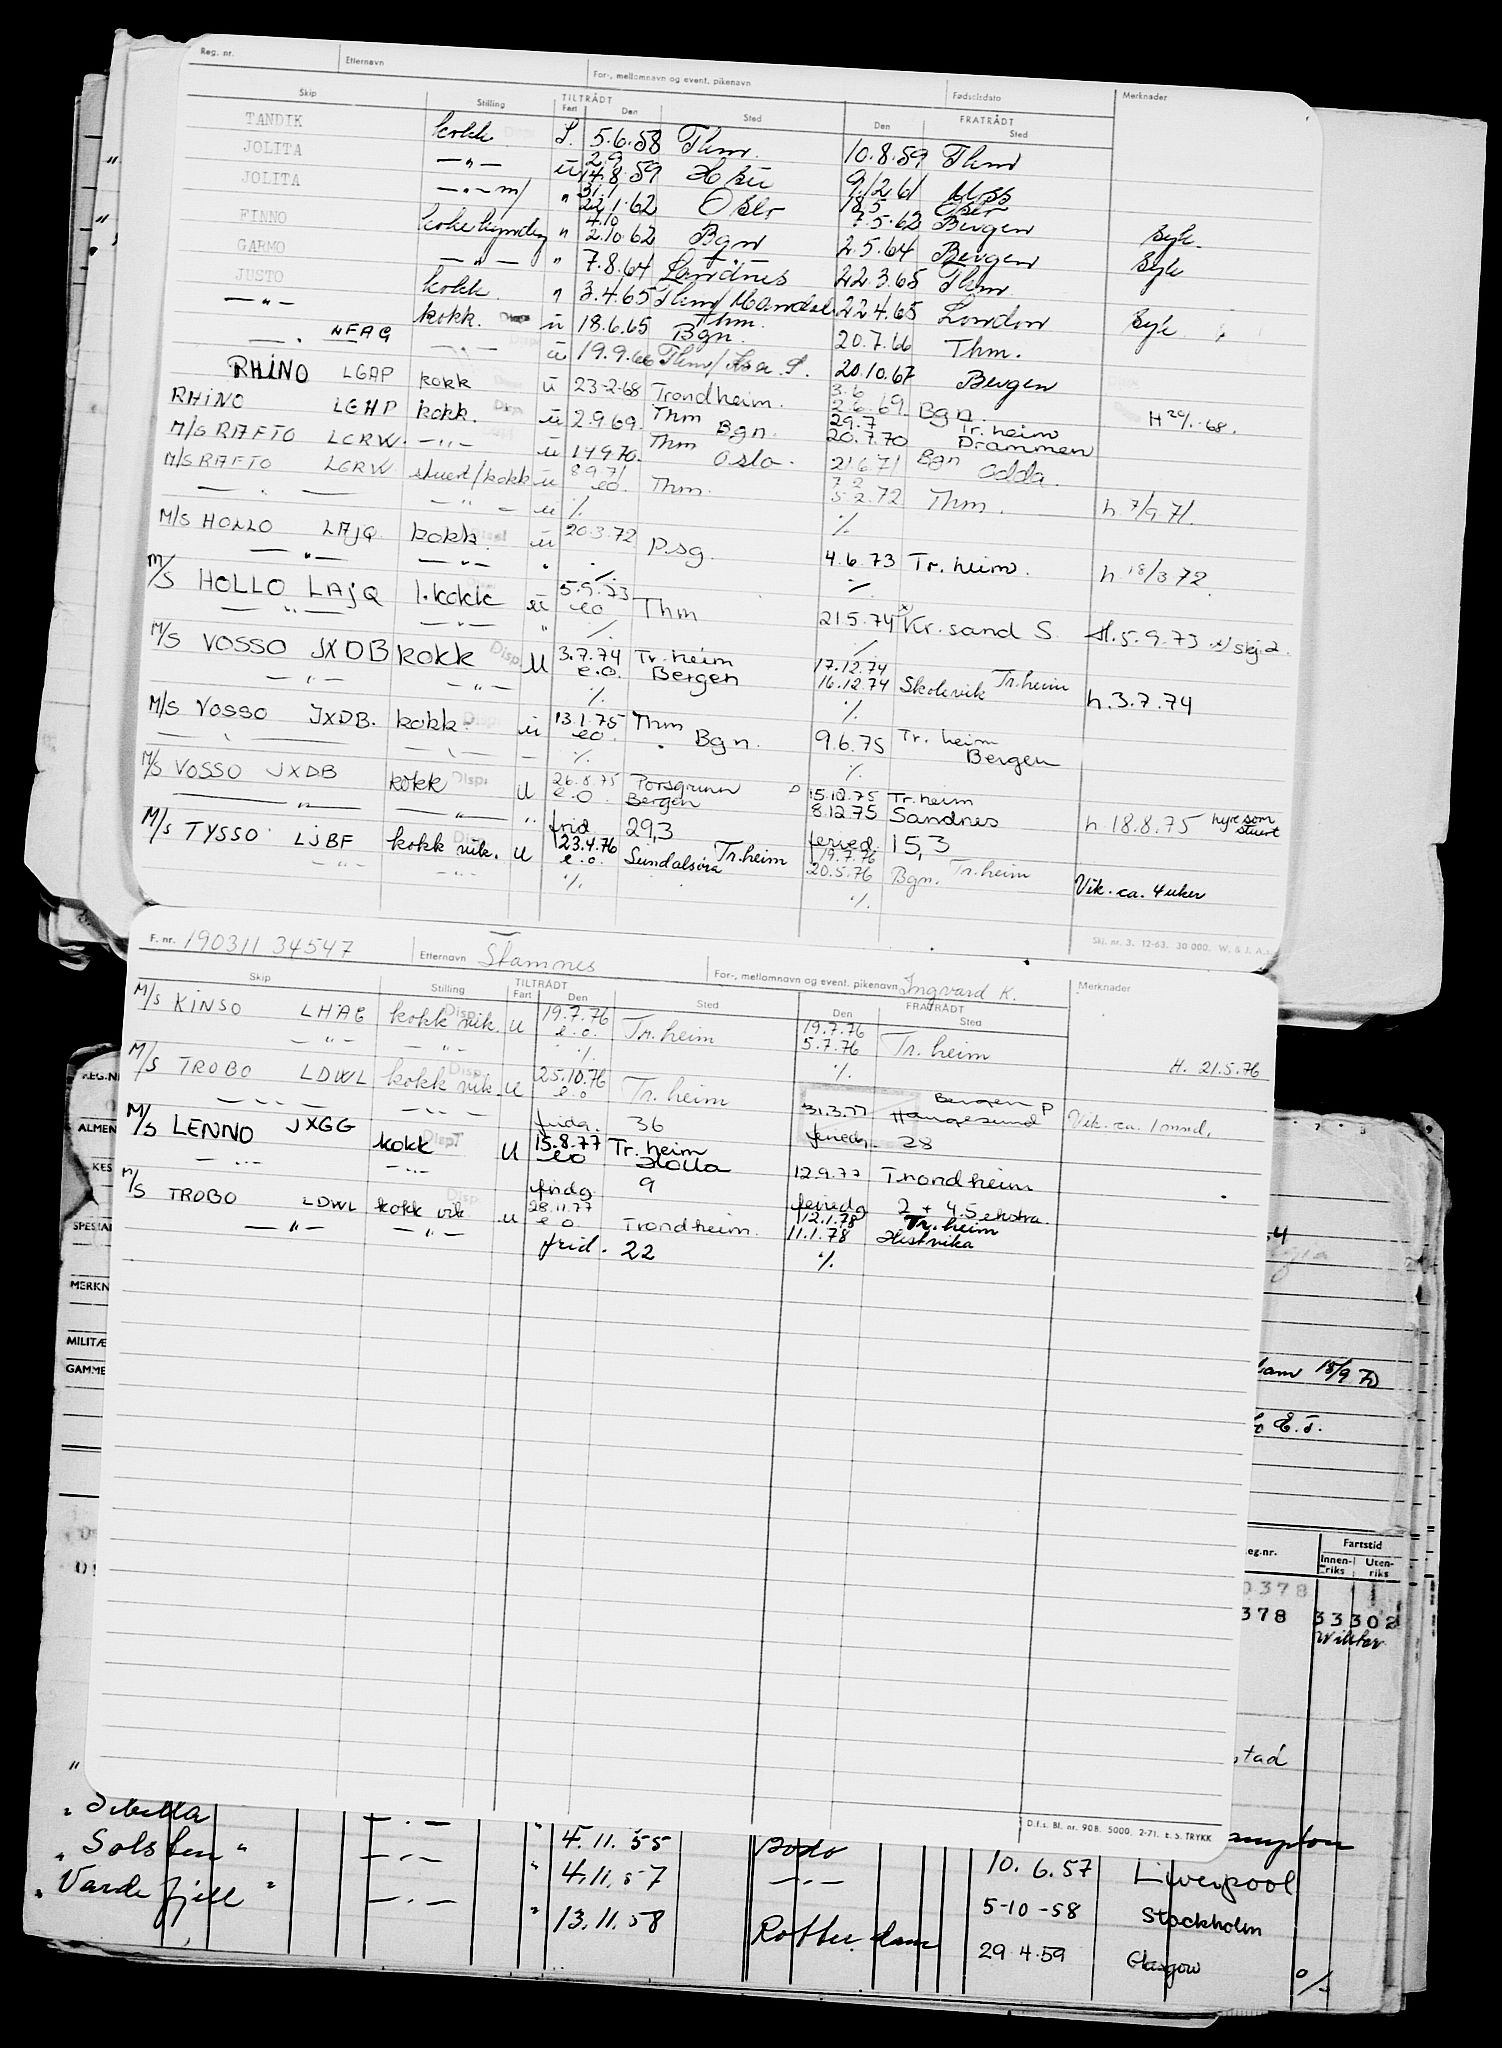 Reg. nr. Etternavn For-, mellomnavn og event. pikenavn Fødselsdato Merknader
Skip Stilling TILTRÅDT Fart Den Sted FRATRÅDT Den Sted
TANDIK kokk 5.6.58 Thm. 10.8.59 Thm
JOLITA —"— ü 2.9 14.8.59 9.12.61 Moss
JOLITA —"— m/ " 31.1 22.1.62 Oslo 18.5 7.5.62 Oslo Bergen syk
FINNO " 4.10 2.10.62 Bgn 2.5.64 Bergen Syk
GARMO —"— " 7.8.64 Sandnes 22.3.65 Thm
JUSTO kokk " 3.4.65 Thm/Mandal 22.4.65 London Syk
—"— kokk. ü 18.6.65 Thm. Bgn. 20.7.66 Thm.
—"— —"— ü 19.9.66 Thm/ 20.10.67 Bergen
RHINO LGAP kokk ü 23-2-68 Trondheim. 3.6 2.6.69 Bgn.
RHINO LEHP kokk. ü 2.9.69. Thm Bgn. 29.7 20.7.70 Tr.heim Drammen
M/S RAFTO LCRW. —"— ü 14970. Thm Oslo. 21.6.71 Bgn Odda.
M/S RAFTO LCRW stuert/kokk ü 8.9.71 eo. Thm. 7.2 5.2.72 Thm. h. 7/9 71.
—"— —"— ü % %
M/S HOLLO LAJQ kokk ü 20.3.72 P.sg. 4.6.73 Tr.heim. h. 18/3 72
—"— —"— " % %
M/S HOLLO LAJQ 1.kokk ü 5.9.73 eo Thm 21.5.74 Kr.sand S. H.5.9.73
—"— —"— " % %
M/S VOSSO JXDB kokk U 3.7.74 e.o. Tr.heim Bergen 17.12.74 16.12.74 Skolevik Tr.heim h.3.7.74
—"— —"— % %
M/S VOSSO JXDB. kokk ü 13.1.75 eo Thm Bgn. 9.6.75 Tr.heim Bergen
—"— —"— % %
M/S VOSSO JXDB kokk U 26.8.75 e.o. Porsgrunn Bergen 15.12.75 8.12.75 Tr.heim Sandnes h 18.8.75 hyre som stuert
—"— —"— " frid 29,3 feried. 15,3
M/S TYSSO LJBF kokk vik. U 23.4.76 e.o. Sundalsøra Tr.heim 19.7.76 20.5.76 Bgn. Tr.heim Vik. ca. 4 uker
—"— —"— % %
Skj. nr. 3. 12-63. 30 000. W. & J. A.
F. nr. 190311 34547 Etternavn Stamnes For-, mellomnavn og event. pikenavn Ingvard K.
Skip Stilling TILTRÅDT Fart Den Sted FRATRÅDT Den Sted Merknader
M/S KINSO LHAE kokk vik. U 19.7.76 e.o. Tr.heim 19.7.76 5.7.76 Tr.heim H. 21.5.76
—"— —"— % %
M/S TROBO LDWL kokk vik. U 25.10.76 e.o Tr.heim 31.3.77 Bergen P Haugesund Vik. ca. 1 mnd.
—"— —"— fridg. 36 feriedg. 28
M/S LENNO JXGG kokk U 15.8.77 eo Tr.heim Holla 12.9.77 Trondheim
—"— —"— fridg 9 feriedg 2 + 4.5 ekstra.
M/S TROBO LDWL kokk vik U 28.11.77 e.o. Trondheim. 12.1.78 11.1.78 Tr.heim Hestvika
—"— —"— frid. 22 %
D.f.s. Bl. nr. 908. 5000, 2-71. E. S. TRYKK
REG.N
ALMEN
KES
SPESIAL
MERKN
MILITÆ
GAMME
15/9 70
E.T.
eg.nr. Fartstid
Innen-riks Uten-riks
0378
378 33302
stad
—"— " 4.11.55 Bodø
" Solsten " —"— " 4.11.57 —"— 10.6.57 Liverpool
" Vardefjell " —"— " 13.11.58 Rotterdam 5-10-58 Stockholm
29.4.59 Glasgow %